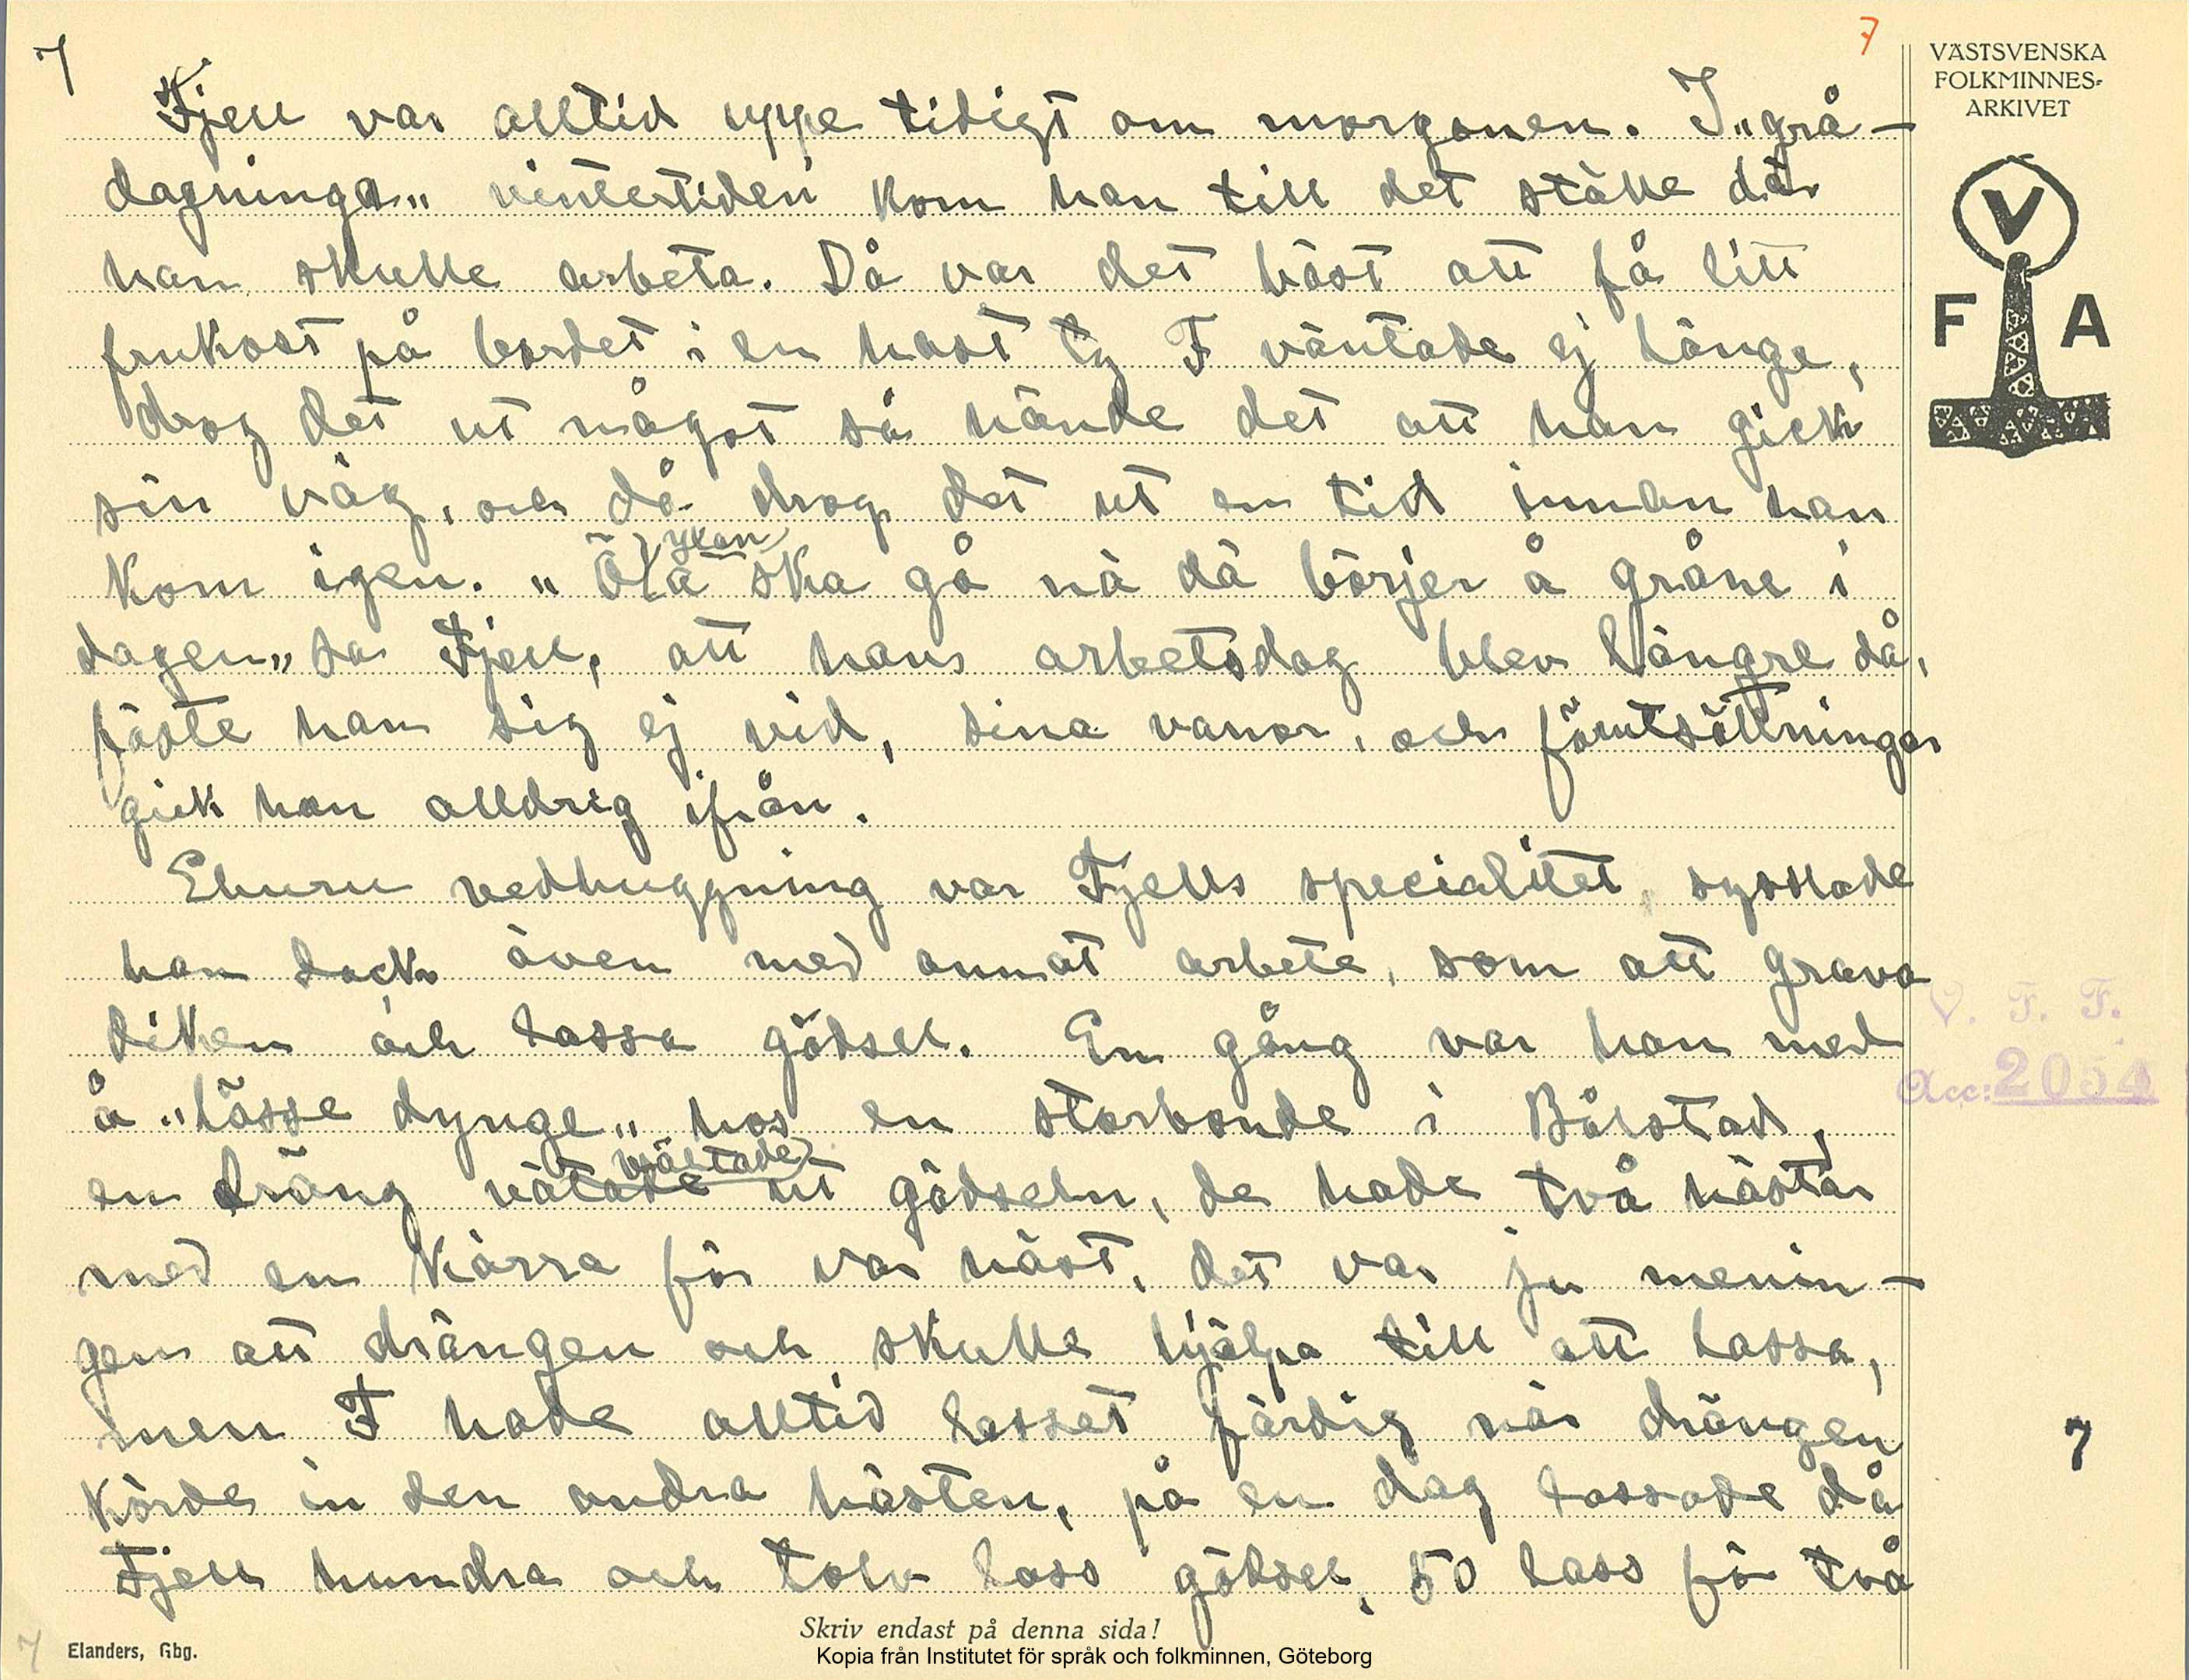 7
7
VÄSTSVENSKA
FOLKMINNES-
ARKIVET
V
F A
Fjell var alltid uppe tidigt om morgonen. I "grå-
dagninga" vintertiden kom han till det ställe där
han skulle arbeta. Då var det bäst att få litt
frukost på bordet i en hast ty F väntade ej länge,
drog det ut något så hände det att han gick
sin väg, och då drog det ut en tid innan han
ylan
kom igen. " ska gå nä dä börjer å gråne i
dagen" sa Fjell, att hans arbetsdag blev längre då,
fäste han sig ej vid, sina vanor, och förutsättningar
gick han alldrig ifrån.
Ehuru vedhuggning var Fjells specialitet sysslade
han dock även med annat arbete, som att grava
diken och lassa gödsel. En gång var han med
å "lässe dynge" hos en storbonde i Bålstad,
vältade
en dräng vätade ut gödseln, de hade två hästar
med en kärra för var häst, det var ju menin-
gen att drängen och skulle hjälpa till att lassa,
men F hade alltid lasset färdig när drängen
körde in den andra hästen, på en dag lassade då
Fjell hundra och tolv lass gödsel, 50 lass för två
V. F. F.
Acc: 2054
7
Skriv endast på denna sida!
7
Elanders, Gbg.
Kopia från Institutet för språk och folkminnen, Göteborg